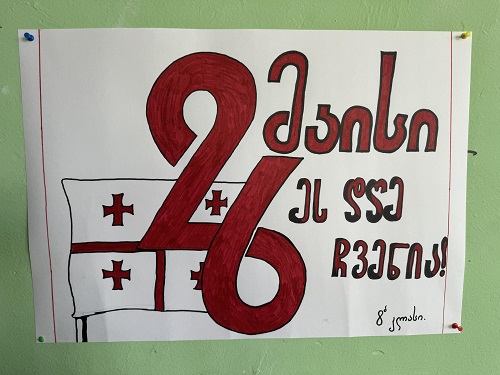 26 მაისი
ეს დღე
ჩვენია!
8ᵃ კლასი.